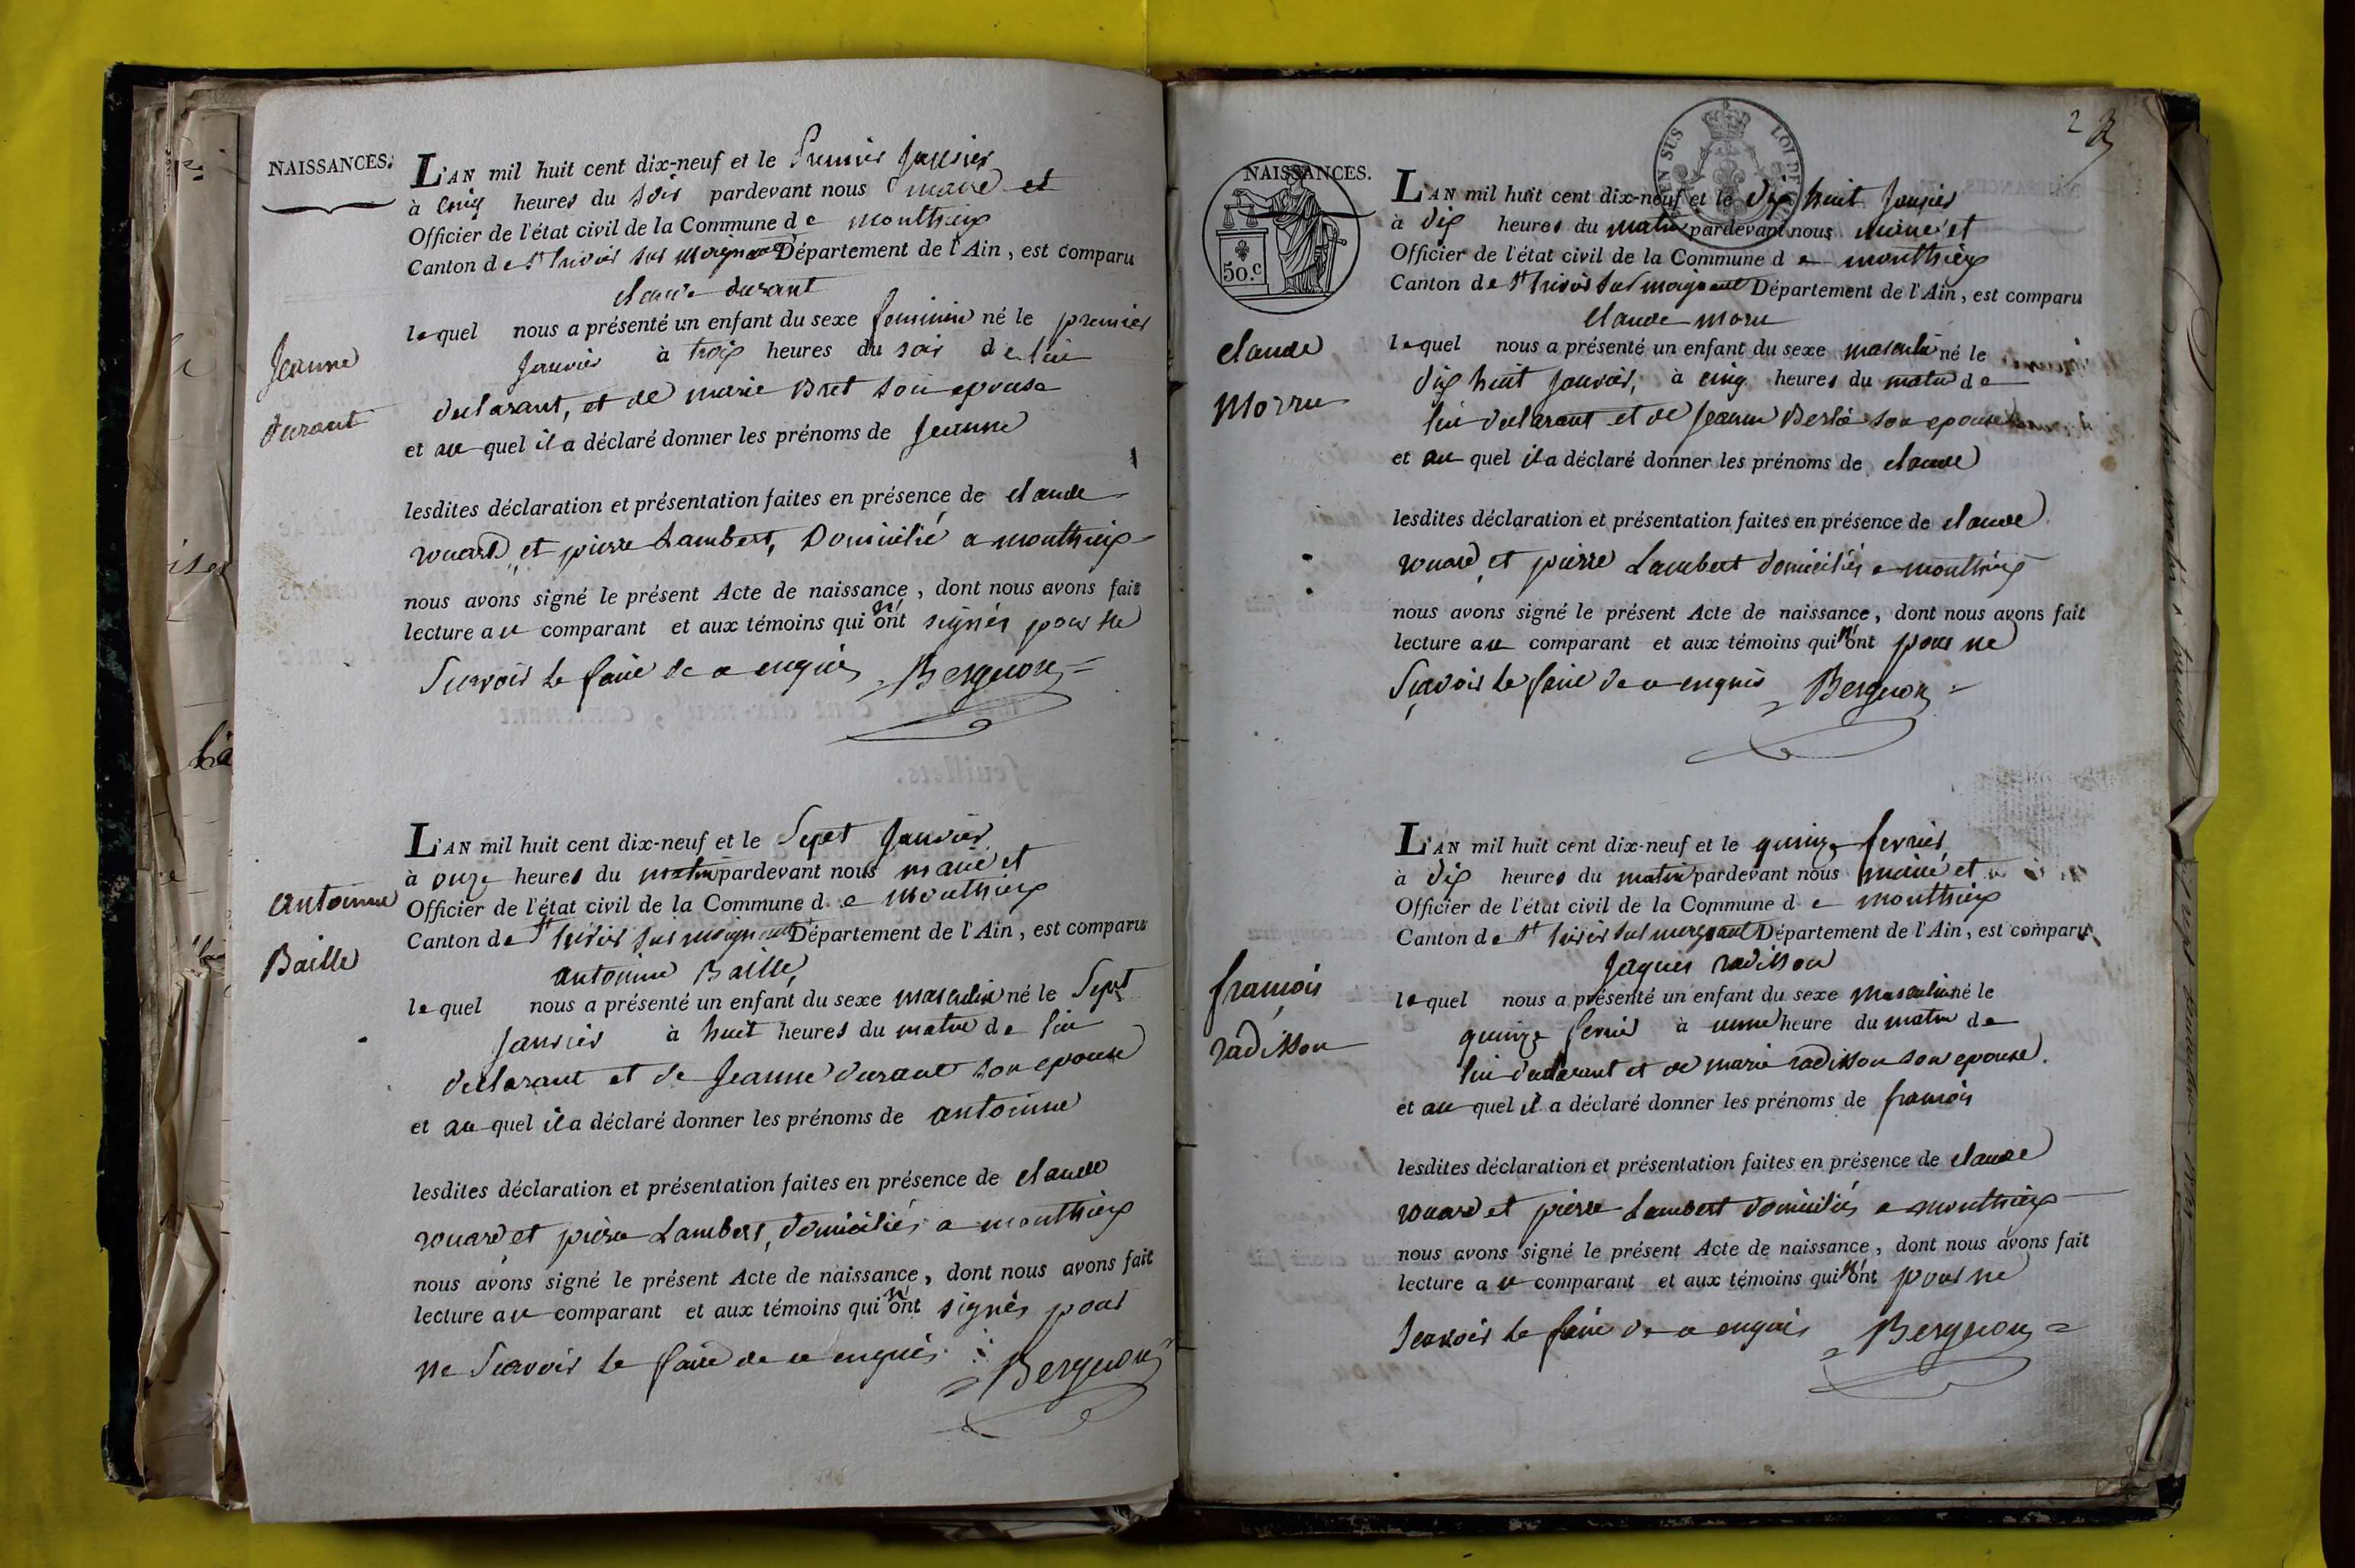 NAISSANCES.
L'AN mil huit cent dix-neuf et le Premier Janvier
à Cinq heures du soir pardevant nous maire et
Officier de l'état civil de la Commune de monthieux
Canton de St trivier sur moignant Département de l'Ain, est comparu
claude durant
lequel nous a présenté un enfant du sexe feminin né le premier
Janvier à trois heures du soir de lui
Jeanne
durant
declarant, et de marie Bret son epouse
et au quel il a déclaré donner les prénoms de Jeanne
lesdites déclaration et présentation faites en présence de claude
rouard et pierre Lambert, Domicilié a monthieux
nous avons signé le présent Acte de naissance, dont nous avons fait
lecture au comparant et aux témoins qui n'ont signés pour ne
Scavoir le faire de ce enquis Bergeron
L'AN mil huit cent dix-neuf et le Sept Janvier
à onze heures du matin pardevant nous maire et
Officier de l'état civil de la Commune de Monthieux
Canton de St trivier sur moignant Département de l'Ain, est comparu
antoinne
Baille
antoinne Baille,
lequel nous a présenté un enfant du sexe masculin né le Sept
Janvier à huit heures du matin de lui
declarant et de Jeanne durant son epouse
et au quel il a déclaré donner les prénoms de antoinne
lesdites déclaration et présentation faites en présence de claude
rouard et pierre Lambert, domiciliés a monthieux
nous avons signé le présent Acte de naissance, dont nous avons fait
lecture au comparant et aux témoins qui n'ont signés pour
ne Scavoir le faire de ce enquis Bergeron
2
NAISSANCES.
50.c
EN SUS
LOI DE
L'AN mil huit cent dix-neuf et le dix huit Janvier
à dix heures du matin pardevant nous maire et
Officier de l'état civil de la Commune de monthieux
Canton de St trivier sur moignant Département de l'Ain, est comparu
claude moru
claude
Morru
lequel nous a présenté un enfant du sexe masculin né le
dix huit Janvier, à cinq heures du matin de
lui declarant et de Jeanne Berlie son epouse
et au quel il a déclaré donner les prénoms de claude
lesdites déclaration et présentation faites en présence de claude
rouard et pierre Lambert domiciliés a monthieux
nous avons signé le présent Acte de naissance, dont nous avons fait
lecture au comparant et aux témoins qui n'ont pour ne
Sçavoir le faire de ce enquis Bergeron
L'AN mil huit cent dix-neuf et le quinze fevrier
à dix heures du matin pardevant nous maire et
Officier de l'état civil de la Commune de monthieux
Canton de St trivier sur moignant Département de l'Ain, est comparu
Jaques radisson
françois
radisson
lequel nous a présenté un enfant du sexe masculin né le
quinze fevrié à unne heure du matin de
lui declarant et de marie radisson son epouse.
et au quel il a déclaré donner les prénoms de francois
lesdites déclaration et présentation faites en présence de claude
rouard et pierre Lambert domiciliés a monthieux
nous avons signé le présent Acte de naissance, dont nous avons fait
lecture au comparant et aux témoins qui n'ont pour ne
Scavoir le faire de ce enquis Bergeron